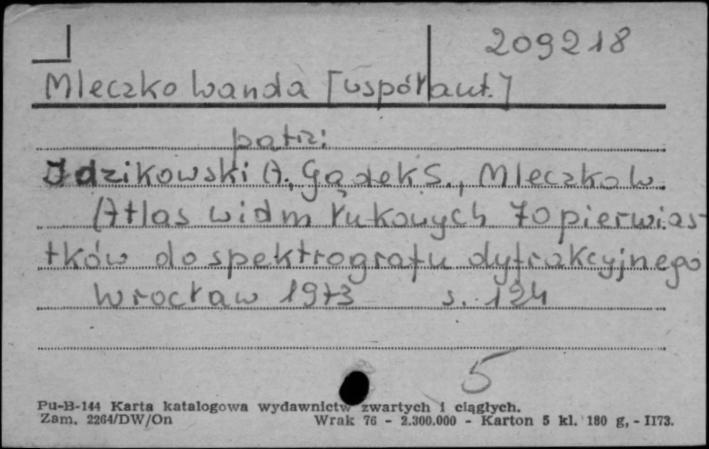 209218
Mleczko Wanda [współaut.]
patrz:
Idzikowski A., Gądek S., Mleczko W.
Atlas widm łukowych 70 pierwias-
tków do spektrografu dyfrakcyjnego
Wrocław 1973 s. 124
5
Pu-B-144 Karta katalogowa wydawnictw zwartych i ciągłych.
Zam. 2264/DW/On Wrak 76 - 2.300.000 - Karton 5 kl. 180 g, - II73.